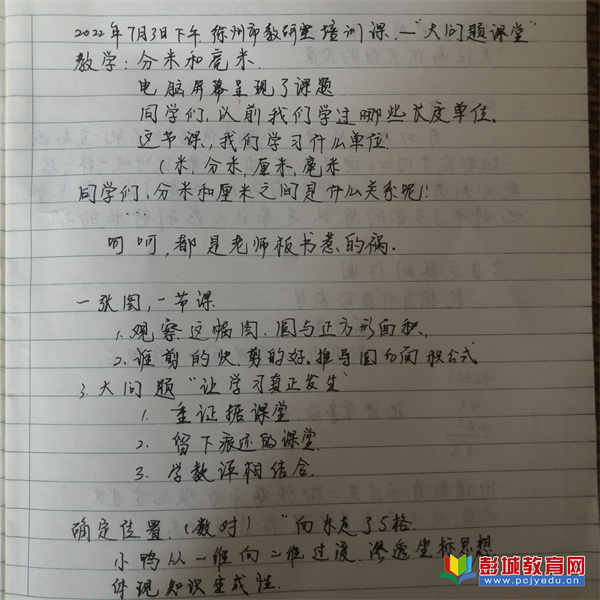 2022年7月3日下午 徐州市教研室培训课,一"大问题课堂"
教学:分米和毫米.
电脑屏幕呈现了课题
同学们,以前我们学过哪些长度单位.
这节课,我们学习什么单位!
(米,分米,厘米,毫米
同学们,分米和厘米之间是什么关系呢!
……
呵呵,都是老师板书惹的祸.
一张图,一节课
1.观察这幅图.圆与正方形面积,
2.谁剪的快,剪的好.推导圆的面积公式
3.大问题"让学习真正发生"
1.重证据课堂
2.留下痕迹的课堂.
3.学教评相结合.
确定位置.(数对) "向东走了5格.
小鸭从一维向二维过渡.渗透坐标思想
体现知识生成性.
彭城教育网
www.pcjyedu.cn